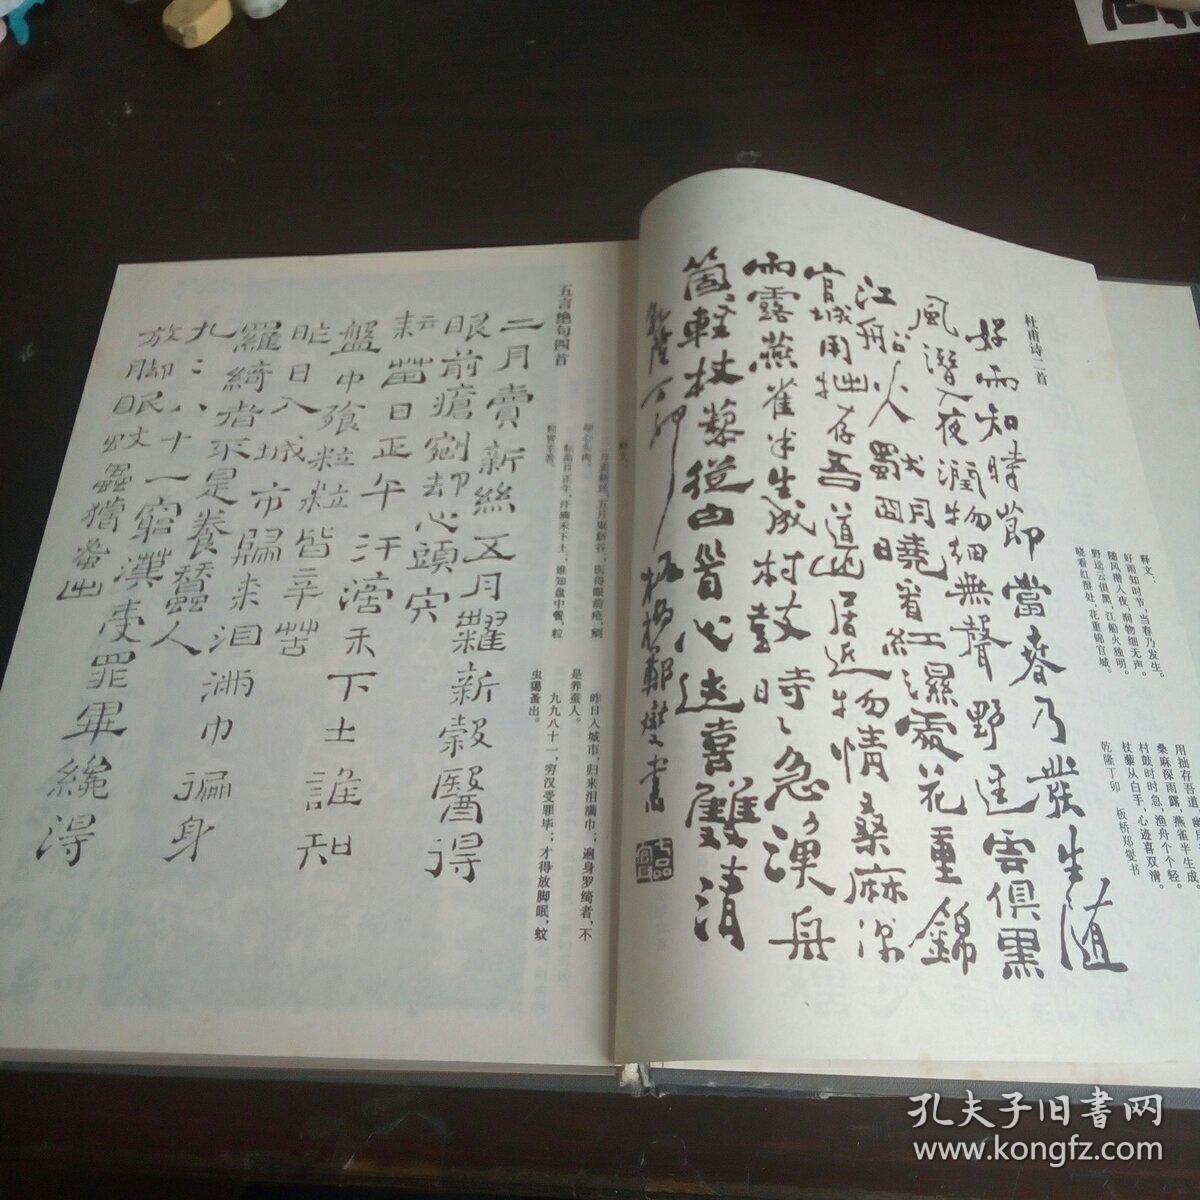 杜甫诗二首
好雨知時節當春乃發生随
風潛入夜潤物細無聲野逕雲俱黑
江船火獨明曉看紅濕處花重錦
官城用拙存吾道幽居近物情桑麻深
雨露燕雀半生成村鼓時〻急漁舟
箇〻輕杖藜從白首心迹喜雙清
乾隆丁卯 板橋鄭燮書
释文：
好雨知时节，当春乃发生。
随风潜入夜，润物细无声。
野迳云俱黑，江船火独明。
晓看红湿处，花重锦官城。
用拙存吾道，幽居
桑麻深雨露，燕雀半生成。
村鼓时时急，渔舟个个轻。
杖藜从白手，心迹喜双清。
乾隆丁卯 板桥郑燮书
五言绝句四首
二月賣新絲五月糶新穀醫得
眼前瘡剜却心頭宍
耘苗日正午汗滴禾下土誰知
盤中飡粒粒皆辛苦
昨日入城市歸来泪满巾遍身
羅綺者不是養蠶人
九九八十一窮漢受罪畢纔得
放脚眠蚊蟲獦蚤出
释文：
二月卖新丝，五月粜新谷，医得眼前疮，剜
却心头肉。
耘苗日正午，汗滴禾下土，谁知盘中餐，粒
粒皆辛苦。
昨日入城市，归来泪满巾；遍身罗绮者，不
是养蚕人。
九九八十一，穷汉受罪毕；才得放脚眠，蚊
虫獦蚤出。
孔夫子旧书网
www.kongfz.com